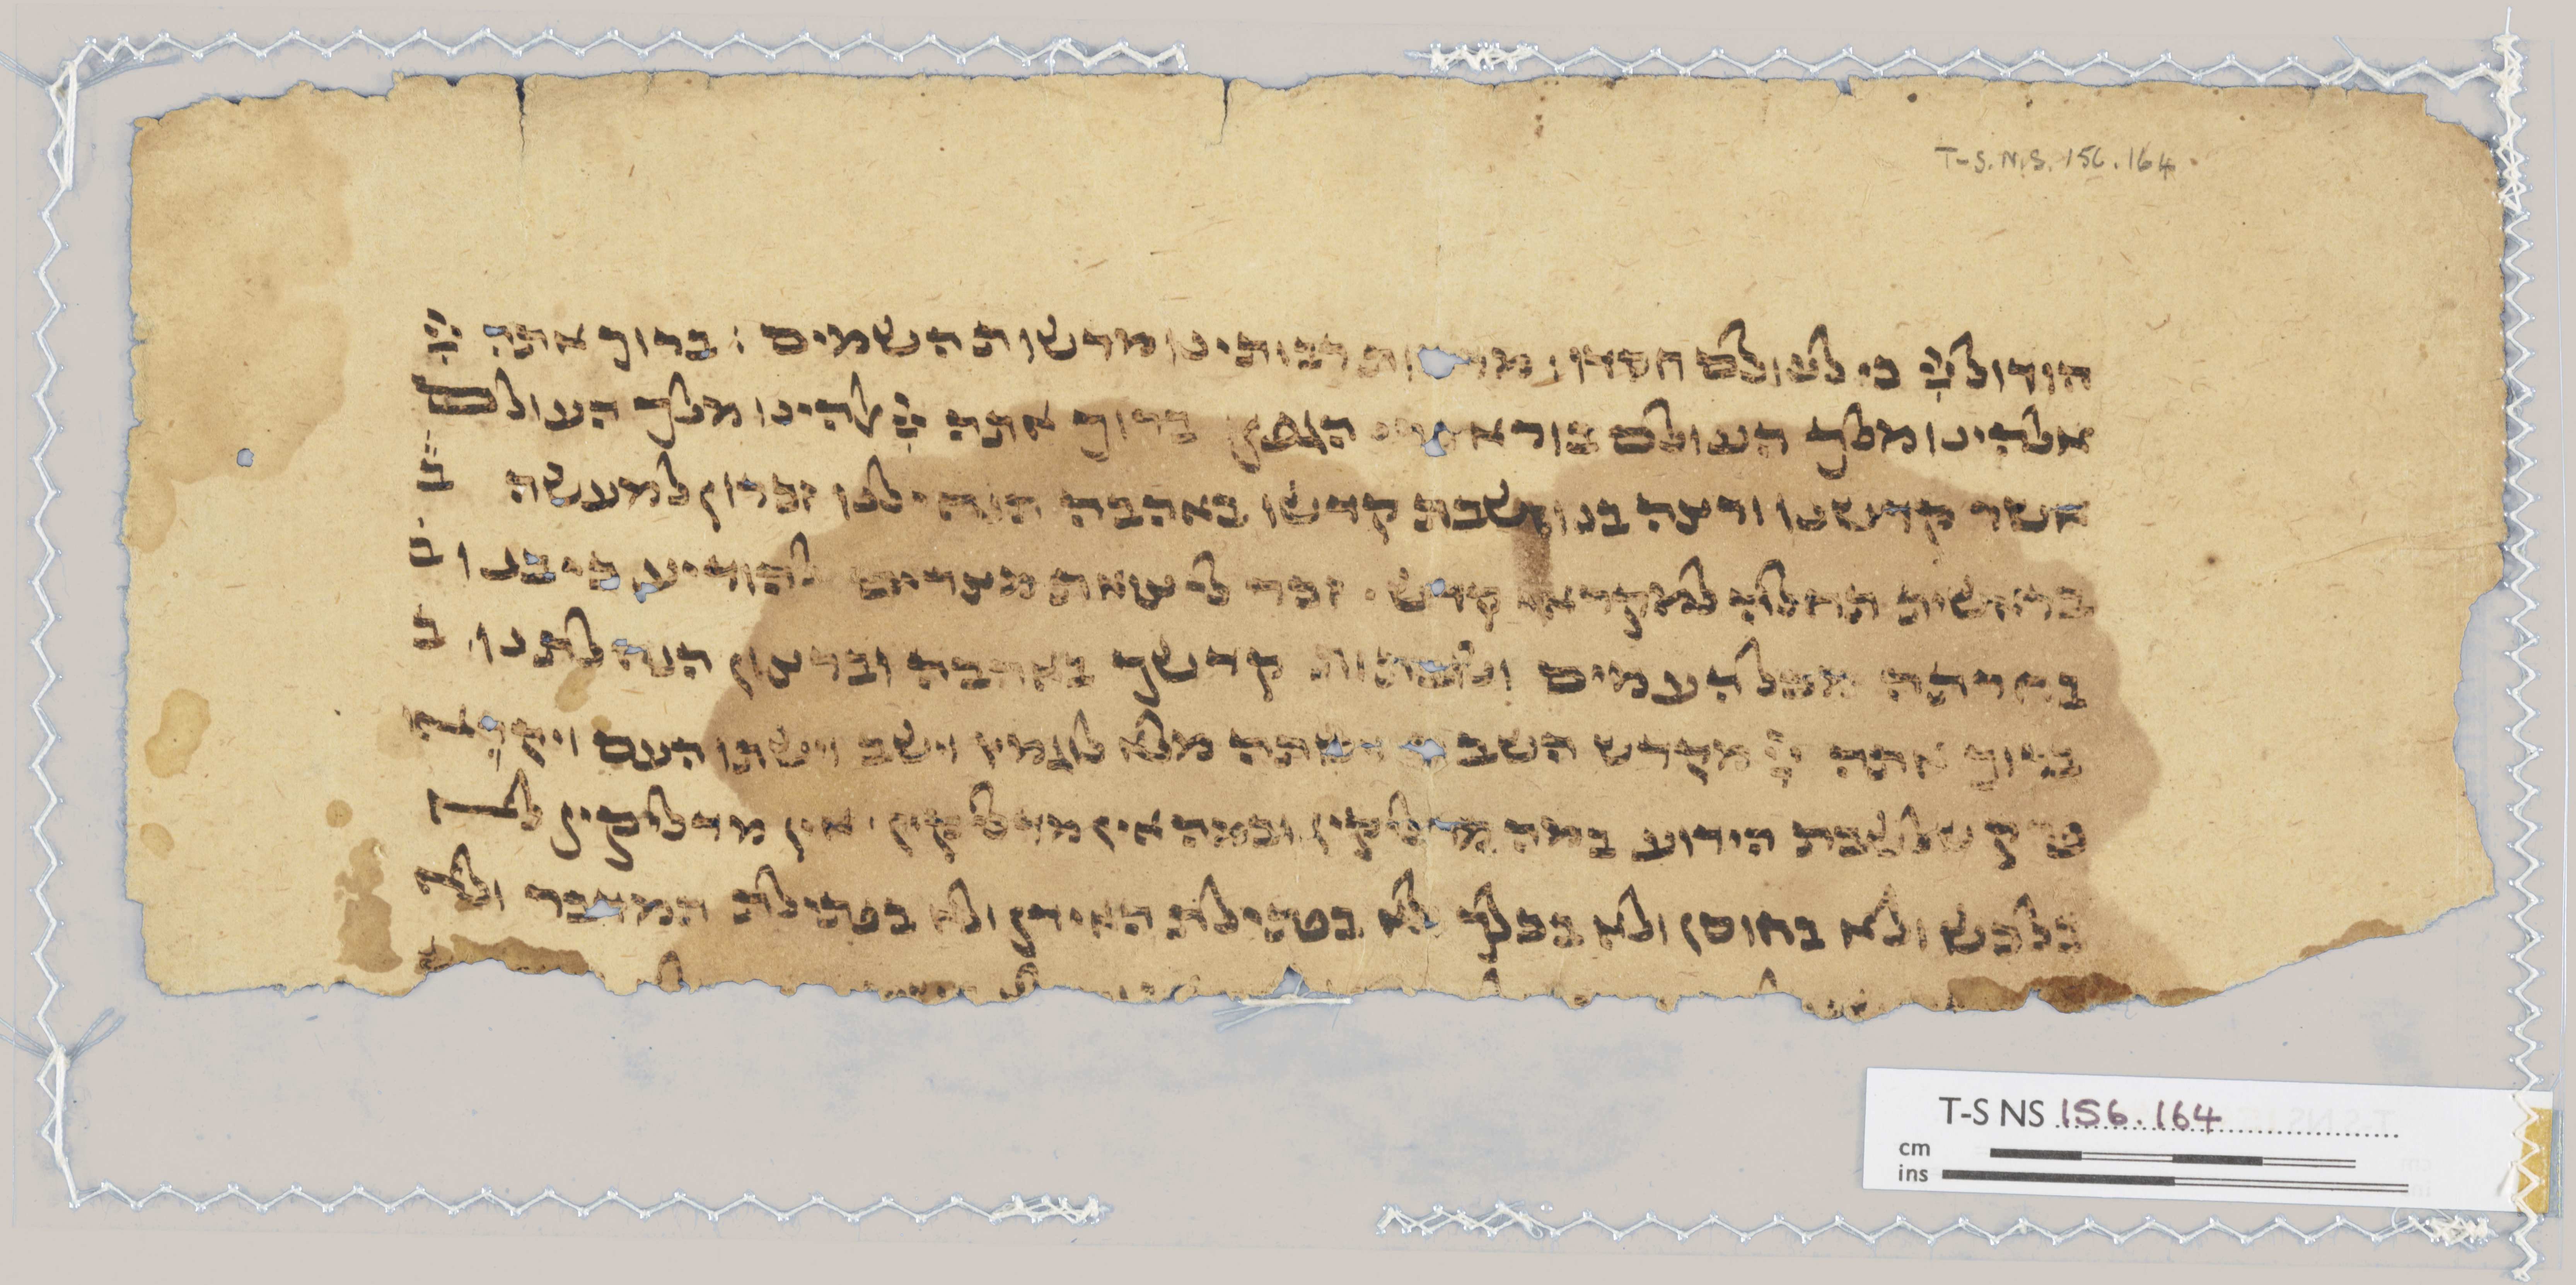 T-S.N.S. 156.164
הודו ליי כי לעולם חסדו : רבותינו ומרשות השמים : ברוך אתה יי
אלהינו מלך העולם בורא פרי הגפן ברוך אתה יי אלהינו מלך העולם
אשר קדשנו ורצה בנו ושבת קדשו באהבה הנחילנו זכרון למעשה ב
בראשית תחלה למקראי קדש . זכר ליציאת מצרים להודיע כי בנו ב
בחרתה מכל העמים קדשך באהבה וברצון הנחלתנו ב
ברוך אתה יי מקדש השבת וישתה מלא לוגמיו וישב וישתו העם ויקרא
פרק שלשבת הידוע במה מדליקין ובמה אין מדליקין . אין מדליקין לא
בלכש ולא בחוסן ולא בכלך לא בפתילת האידן ולא בפתילת המדבר ולא
T-S NS 156.164
cm
ins